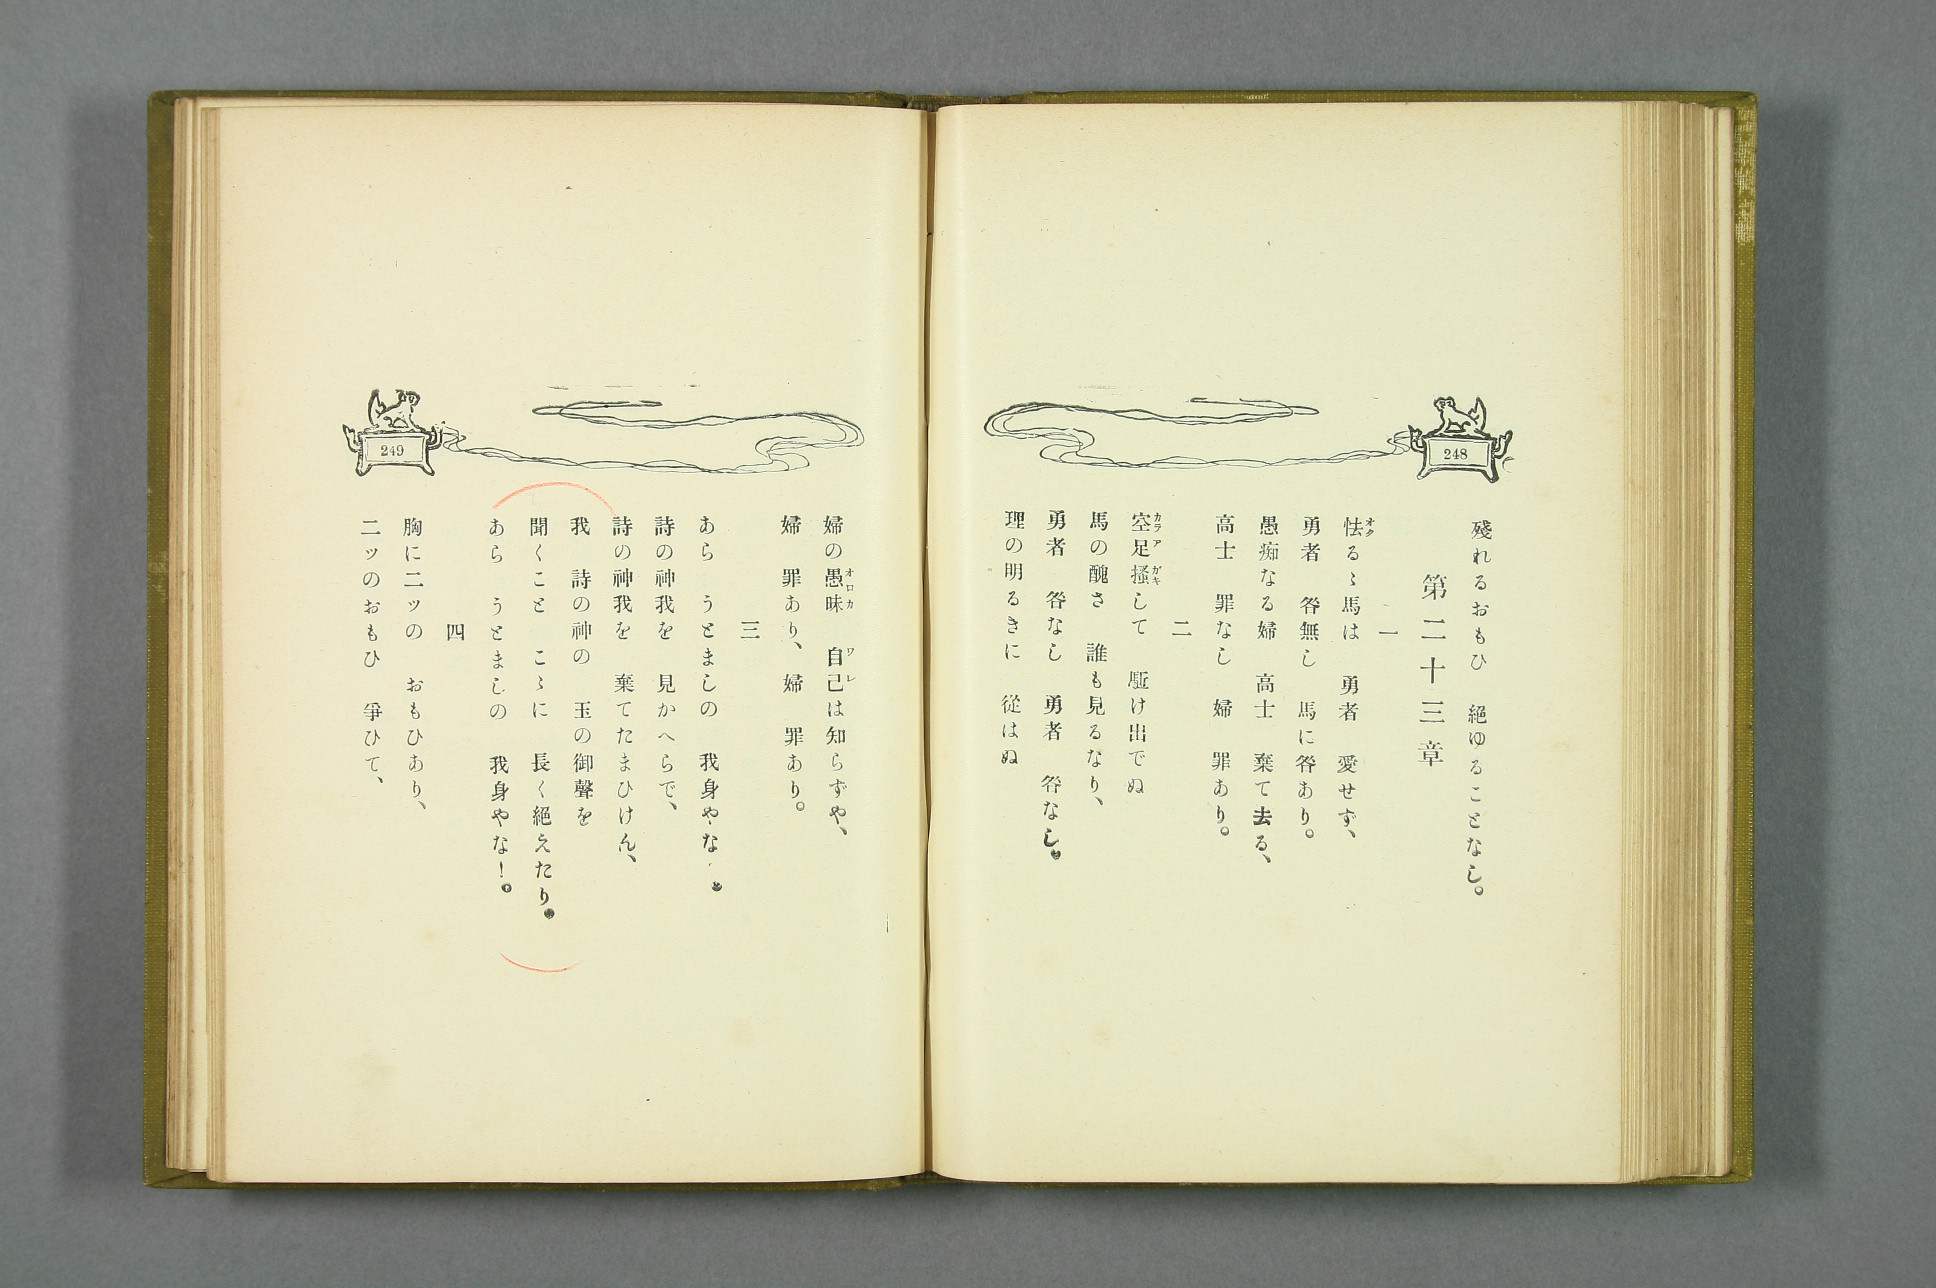 248
殘れるおもひ　絕ゆることなし。
第二十三章
一
怯るゝ馬は　勇者　愛せず、
勇者　咎無し　馬に咎あり。
愚痴なる婦　高士　棄て去る、
高士　罪なし　婦　罪あり。
二
空足搔して　駈け出でぬ
馬の醜さ　誰も見るなり、
勇者　咎なし　勇者　咎なし。
理の明るきに　從はぬ
249
婦の愚昧　自己は知らずや、
婦　罪あり、婦　罪あり。
三
あら　うとましの　我身やな
詩の神我を　見かへらで、
詩の神我を　棄てたまひけん、
我　詩の神の　玉の御聲を
聞くこと　こゝに　長く絕えたり。
あら　うとましの　我身やな！。
四
胸に二ッの　おもひあり、
二ッのおもひ　爭ひて、